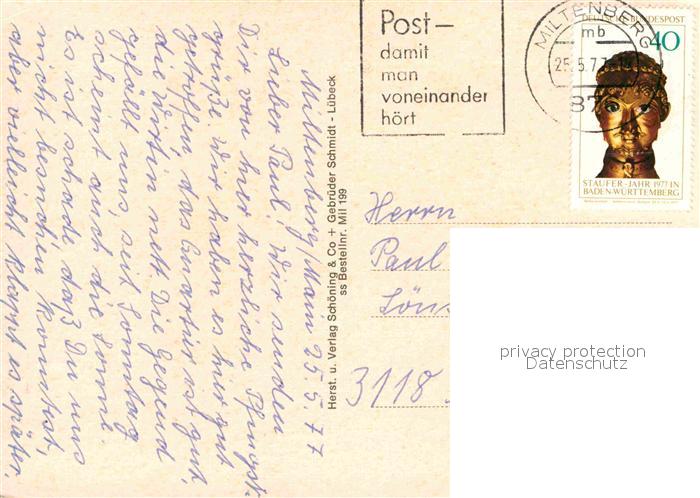 Miltenberg/Main 25.5.77
Lieber Paul! Wir senden
Dir von hier herzliche Pfingst-
grüße. Wir haben es hier gut
getroffen, das Quartier ist gut,
die Wirtin nett. Die Gegend
gefällt uns, seit Sonntag
scheint auch die Sonne.
Es ist schade daß Du uns
nicht besuchen konntest,
aber vielleicht klappt es später.
Herst. u. Verlag Schöning & Co + Gebrüder Schmidt - Lübeck
ss Bestellnr. Mil 199
Post-
damit
man
voneinander
hört
MILTENBERG
mb
25.5.7
87
DEUTSCHE BUNDESPOST
40
STAUFER-JAHR 1977 IN
BADEN-WÜRTTEMBERG
Herrn
Paul
Löns
3118
privacy protection
Datenschutz